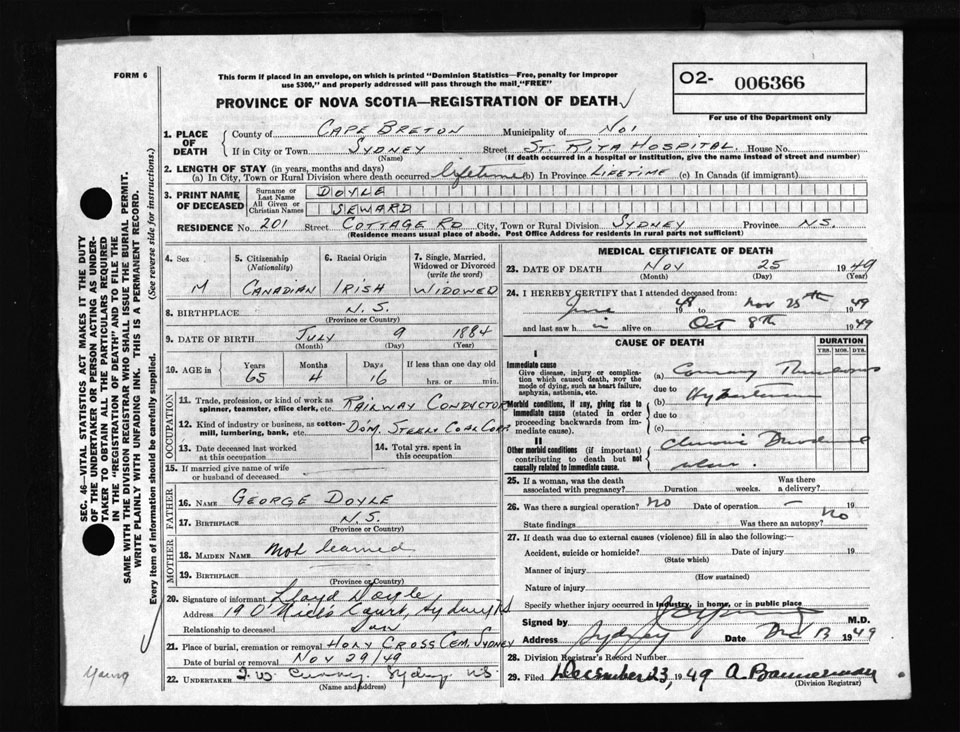 FORM 6
This form if placed in an envelope, on which is printed "Dominion Statistics—Free, penalty for improper
use $300," and properly addressed will pass through the mail "FREE"
O2- 006366
For use of the Department only
PROVINCE OF NOVA SCOTIA—REGISTRATION OF DEATH
1. PLACE OF DEATH
County of CAPE BRETON Municipality of No 1
If in City or Town SYDNEY Street ST. RITA HOSPITAL. House No.
(Name) (If death occurred in a hospital or institution, give the name instead of street and number)
2. LENGTH OF STAY (in years, months and days)
(a) In City, Town or Rural Division where death occurred lifetime (b) In Province LIFETIME (c) In Canada (if immigrant)
3. PRINT NAME OF DECEASED
Surname or Last Name DOYLE
All Given or Christian Names SEWARD
RESIDENCE No. 201 Street COTTAGE RD City, Town or Rural Division SYDNEY Province N.S.
(Residence means usual place of abode. Post Office Address for residents in rural parts not sufficient)
4. Sex M
5. Citizenship (Nationality) CANADIAN
6. Racial Origin IRISH
7. Single, Married, Widowed or Divorced (write the word) WIDOWED
8. BIRTHPLACE N.S.
(Province or Country)
9. DATE OF BIRTH JULY 9 1884
(Month) (Day) (Year)
10. AGE in Years 65 Months 4 Days 16 If less than one day old hrs. or min.
OCCUPATION
11. Trade, profession or kind of work as spinner, teamster, office clerk, etc. RAILWAY CONDUCTOR
12. Kind of industry or business, as cotton-mill, lumbering, bank, etc. DOM. STEEL & COAL CORP.
13. Date deceased last worked at this occupation
14. Total yrs. spent in this occupation
15. If married give name of wife or husband of deceased
FATHER
16. NAME GEORGE DOYLE
17. BIRTHPLACE N.S.
(Province or Country)
MOTHER
18. MAIDEN NAME not learned
19. BIRTHPLACE
(Province or Country)
20. Signature of informant Lloyd Doyle
Address 19 Court, Sydney NS
Relationship to deceased Son
21. Place of burial, cremation or removal HOLY CROSS CEM, SYDNEY
Date of burial or removal NOV 29/49
22. UNDERTAKER Sydney N.S.
(Name and address)
MEDICAL CERTIFICATE OF DEATH
23. DATE OF DEATH Nov 25 1949
(Month) (Day)
24. I HEREBY CERTIFY that I attended deceased from:
June 1948 to Nov 25th 1949
and last saw h im alive on Oct 8th 1949
CAUSE OF DEATH
DURATION
YRS. MOS. DYS.
I
Immediate cause
Give disease, injury or complication which caused death, NOT the mode of dying, such as heart failure, asphyxia, asthenia, etc.
(a) Coronary Thrombosis
due to
Morbid conditions, if any, giving rise to immediate cause (stated in order proceeding backwards from immediate cause).
(b) Hypertension
due to
(c)
II
Other morbid conditions (if important) contributing to death but not causally related to immediate cause.
Chronic Duodenal ulcer.
25. If a woman, was the death associated with pregnancy? Duration weeks. Was there a delivery?
26. Was there a surgical operation? No Date of operation — 19
State findings Was there an autopsy? No
27. If death was due to external causes (violence) fill in also the following:—
Accident, suicide or homicide? Date of injury 19
(State which)
Manner of injury
(How sustained)
Nature of injury
Specify whether injury occurred in industry, in home, or in public place
Signed by M.D.
Address Sydney Date Dec 13 1949
28. Division Registrar's Record Number
29. Filed December 23, 1949
(Division Registrar)
SEC. 46—VITAL STATISTICS ACT MAKES IT THE DUTY
OF THE UNDERTAKER OR PERSON ACTING AS UNDER-
TAKER TO OBTAIN ALL THE PARTICULARS REQUIRED
IN THE "REGISTRATION OF DEATH" AND TO FILE THE
SAME WITH THE DIVISION REGISTRAR WHO SHALL ISSUE THE BURIAL PERMIT.
WRITE PLAINLY WITH UNFADING INK. THIS IS A PERMANENT RECORD.
Every item of information should be carefully supplied. (See reverse side for instructions.)